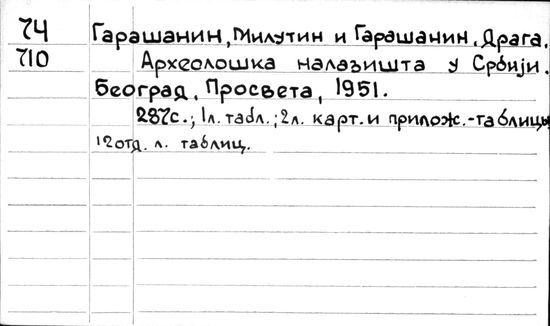 74 Гарашанин, Милутин и Гарашанин, Драга.
710 Археолошка налазишта у Србији.
Београд, Просвета, 1951.
287с.; 1л. табл.; 2л. карт. и прилож.-таблицы
12 отд. л. таблиц.